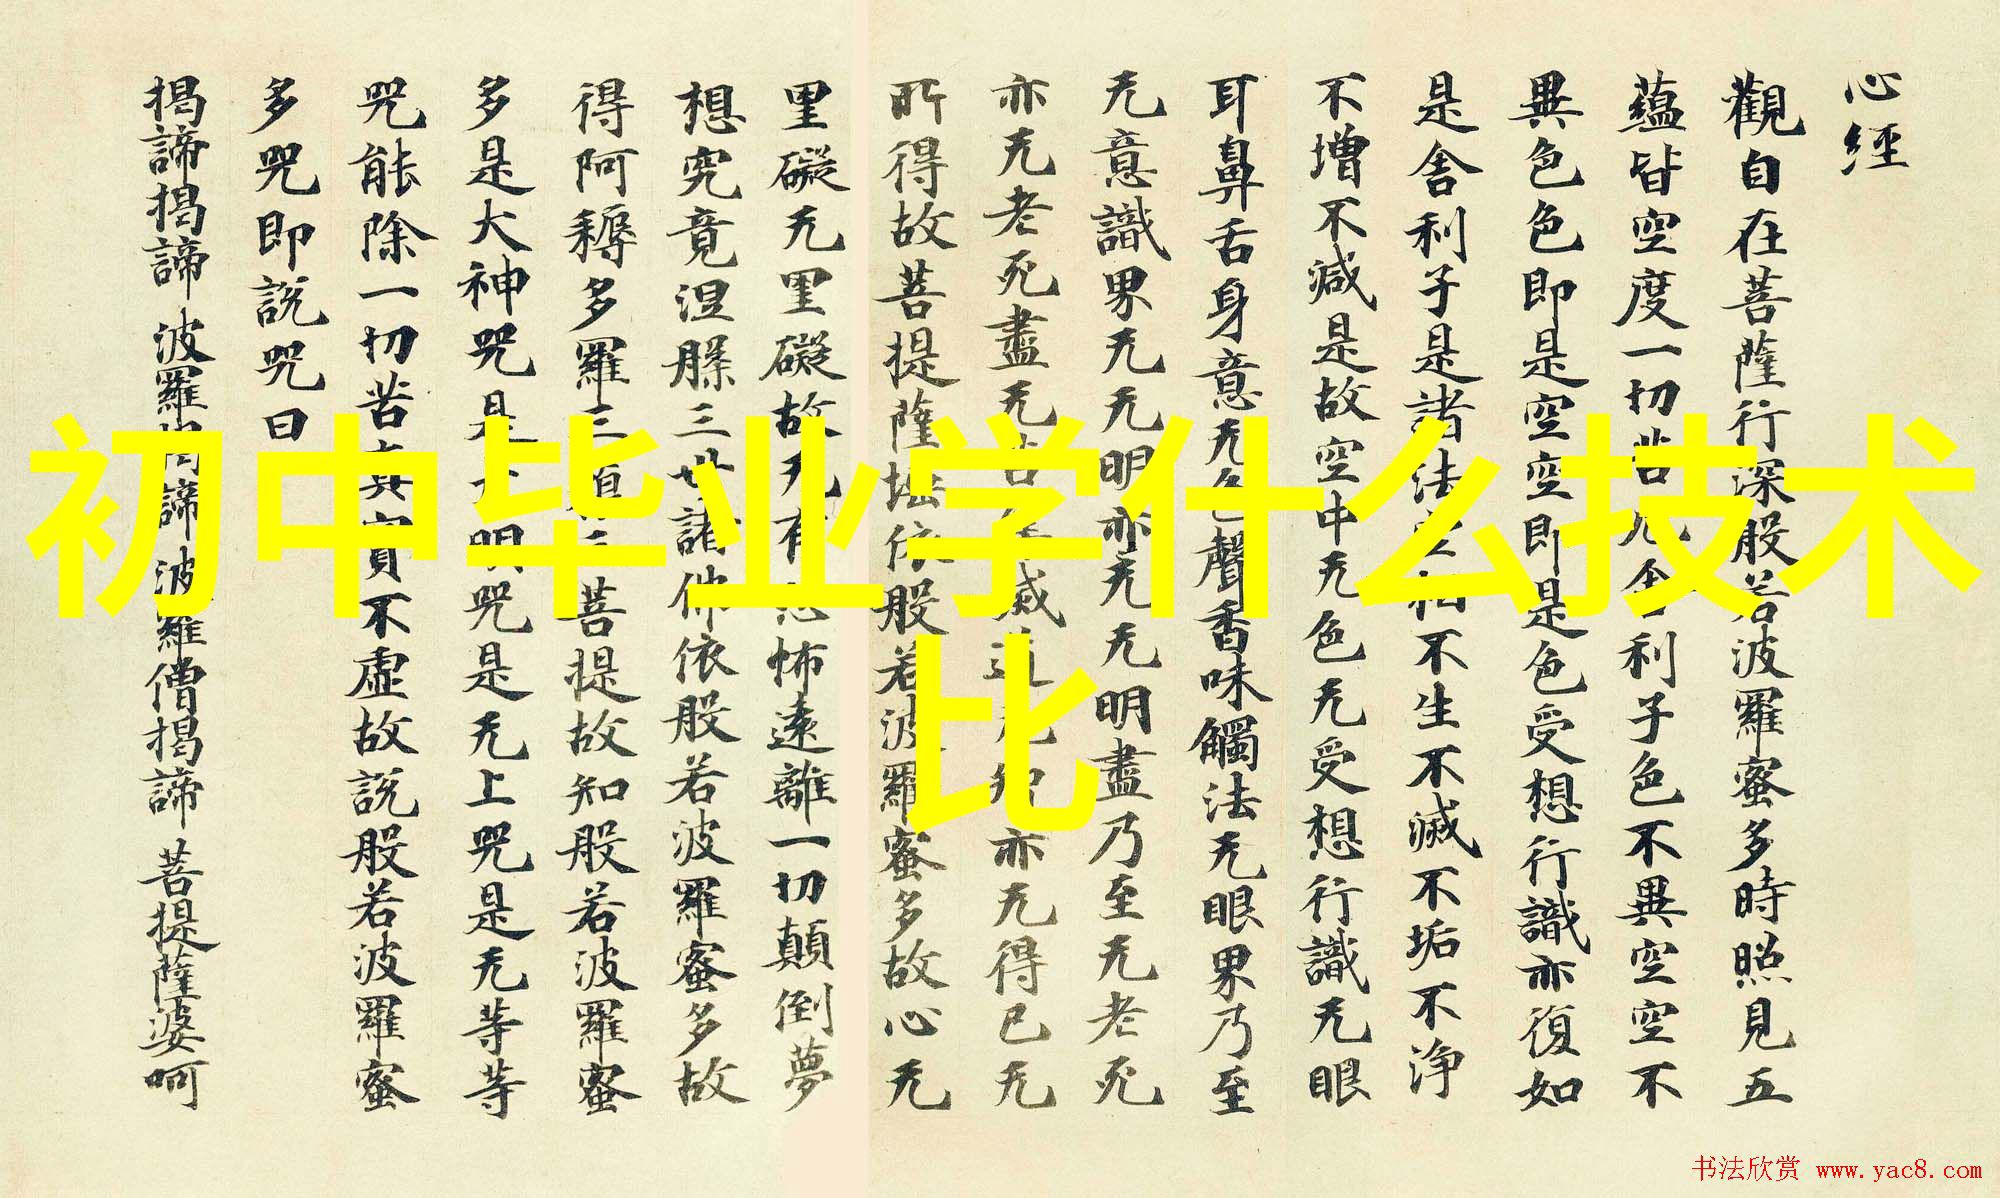 心經
觀自在菩薩行深般若波羅蜜多時照見五
蘊皆空度一切苦舍利子色不異空空不
異色色即是空空即是色受想行識亦復如
是舍利子是諸法相不生不滅不垢不淨
不增不減是故空中无色无受想行識无眼
耳鼻舌身意无色聲香味觸法无眼界乃至
无意識界无无明亦无无明盡乃至无老死
亦无老死盡无苦滅道无知亦无得已无
所得故菩提薩埵依般若波羅蜜多故心无
罣礙无罣礙故无有怖遠離一切顛倒夢
想究竟涅槃三世諸仏依般若波羅蜜多故
得阿耨多羅三菩提故知般若波羅蜜
多是大神咒是大明咒是无上咒是无等等
咒能除一切苦真實不虛故說般若波羅蜜
多咒即說咒曰
揭諦揭諦 波羅揭諦 波羅僧揭諦 菩提薩婆呵
初中毕业学什么技术
比
书法欣赏 www.yac8.com